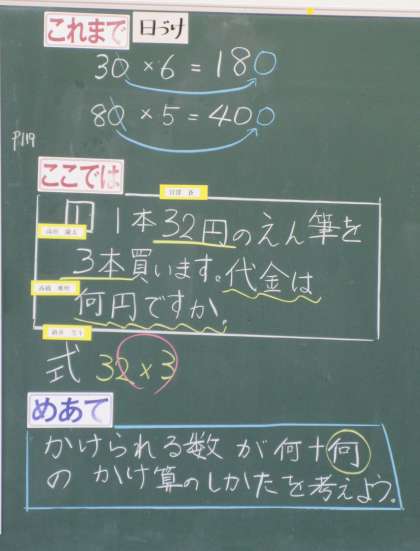 これまで 日づけ
30×6=180
80×5=400
P119
ここでは
1 1本32円のえん筆を
3本買います。代金は
何円ですか。
式 32×3
めあて
かけられる数が何十何
のかけ算のしかたを考えよう。